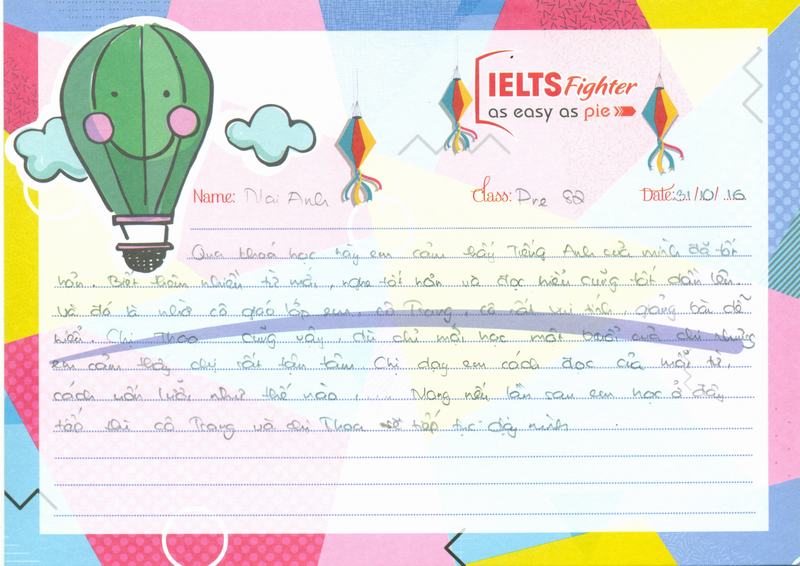 IELTS Fighter
as easy as pie
Name: Mai Anh Class: Pre 82 Date: 31/10/16
Qua khoá học này em cảm thấy Tiếng Anh của mình đã tốt
hơn. Biết thêm nhiều từ mới, nghe tốt hơn và đọc hiểu cũng tốt dần lên.
Và đó là nhờ cô giáo lớp em, cô Trang, cô rất vui tính, giảng bài dễ
hiểu. Chị Thoa cũng vậy, dù chỉ mới học một buổi của chị nhưng
em cảm thấy chị rất tận tâm. Chị dạy em cách đọc của mỗi từ,
cách uốn lưỡi như thế nào, .... Mong nếu lần sau em học ở đây
tiếp thì cô Trang và chị Thoa sẽ tiếp tục dạy mình